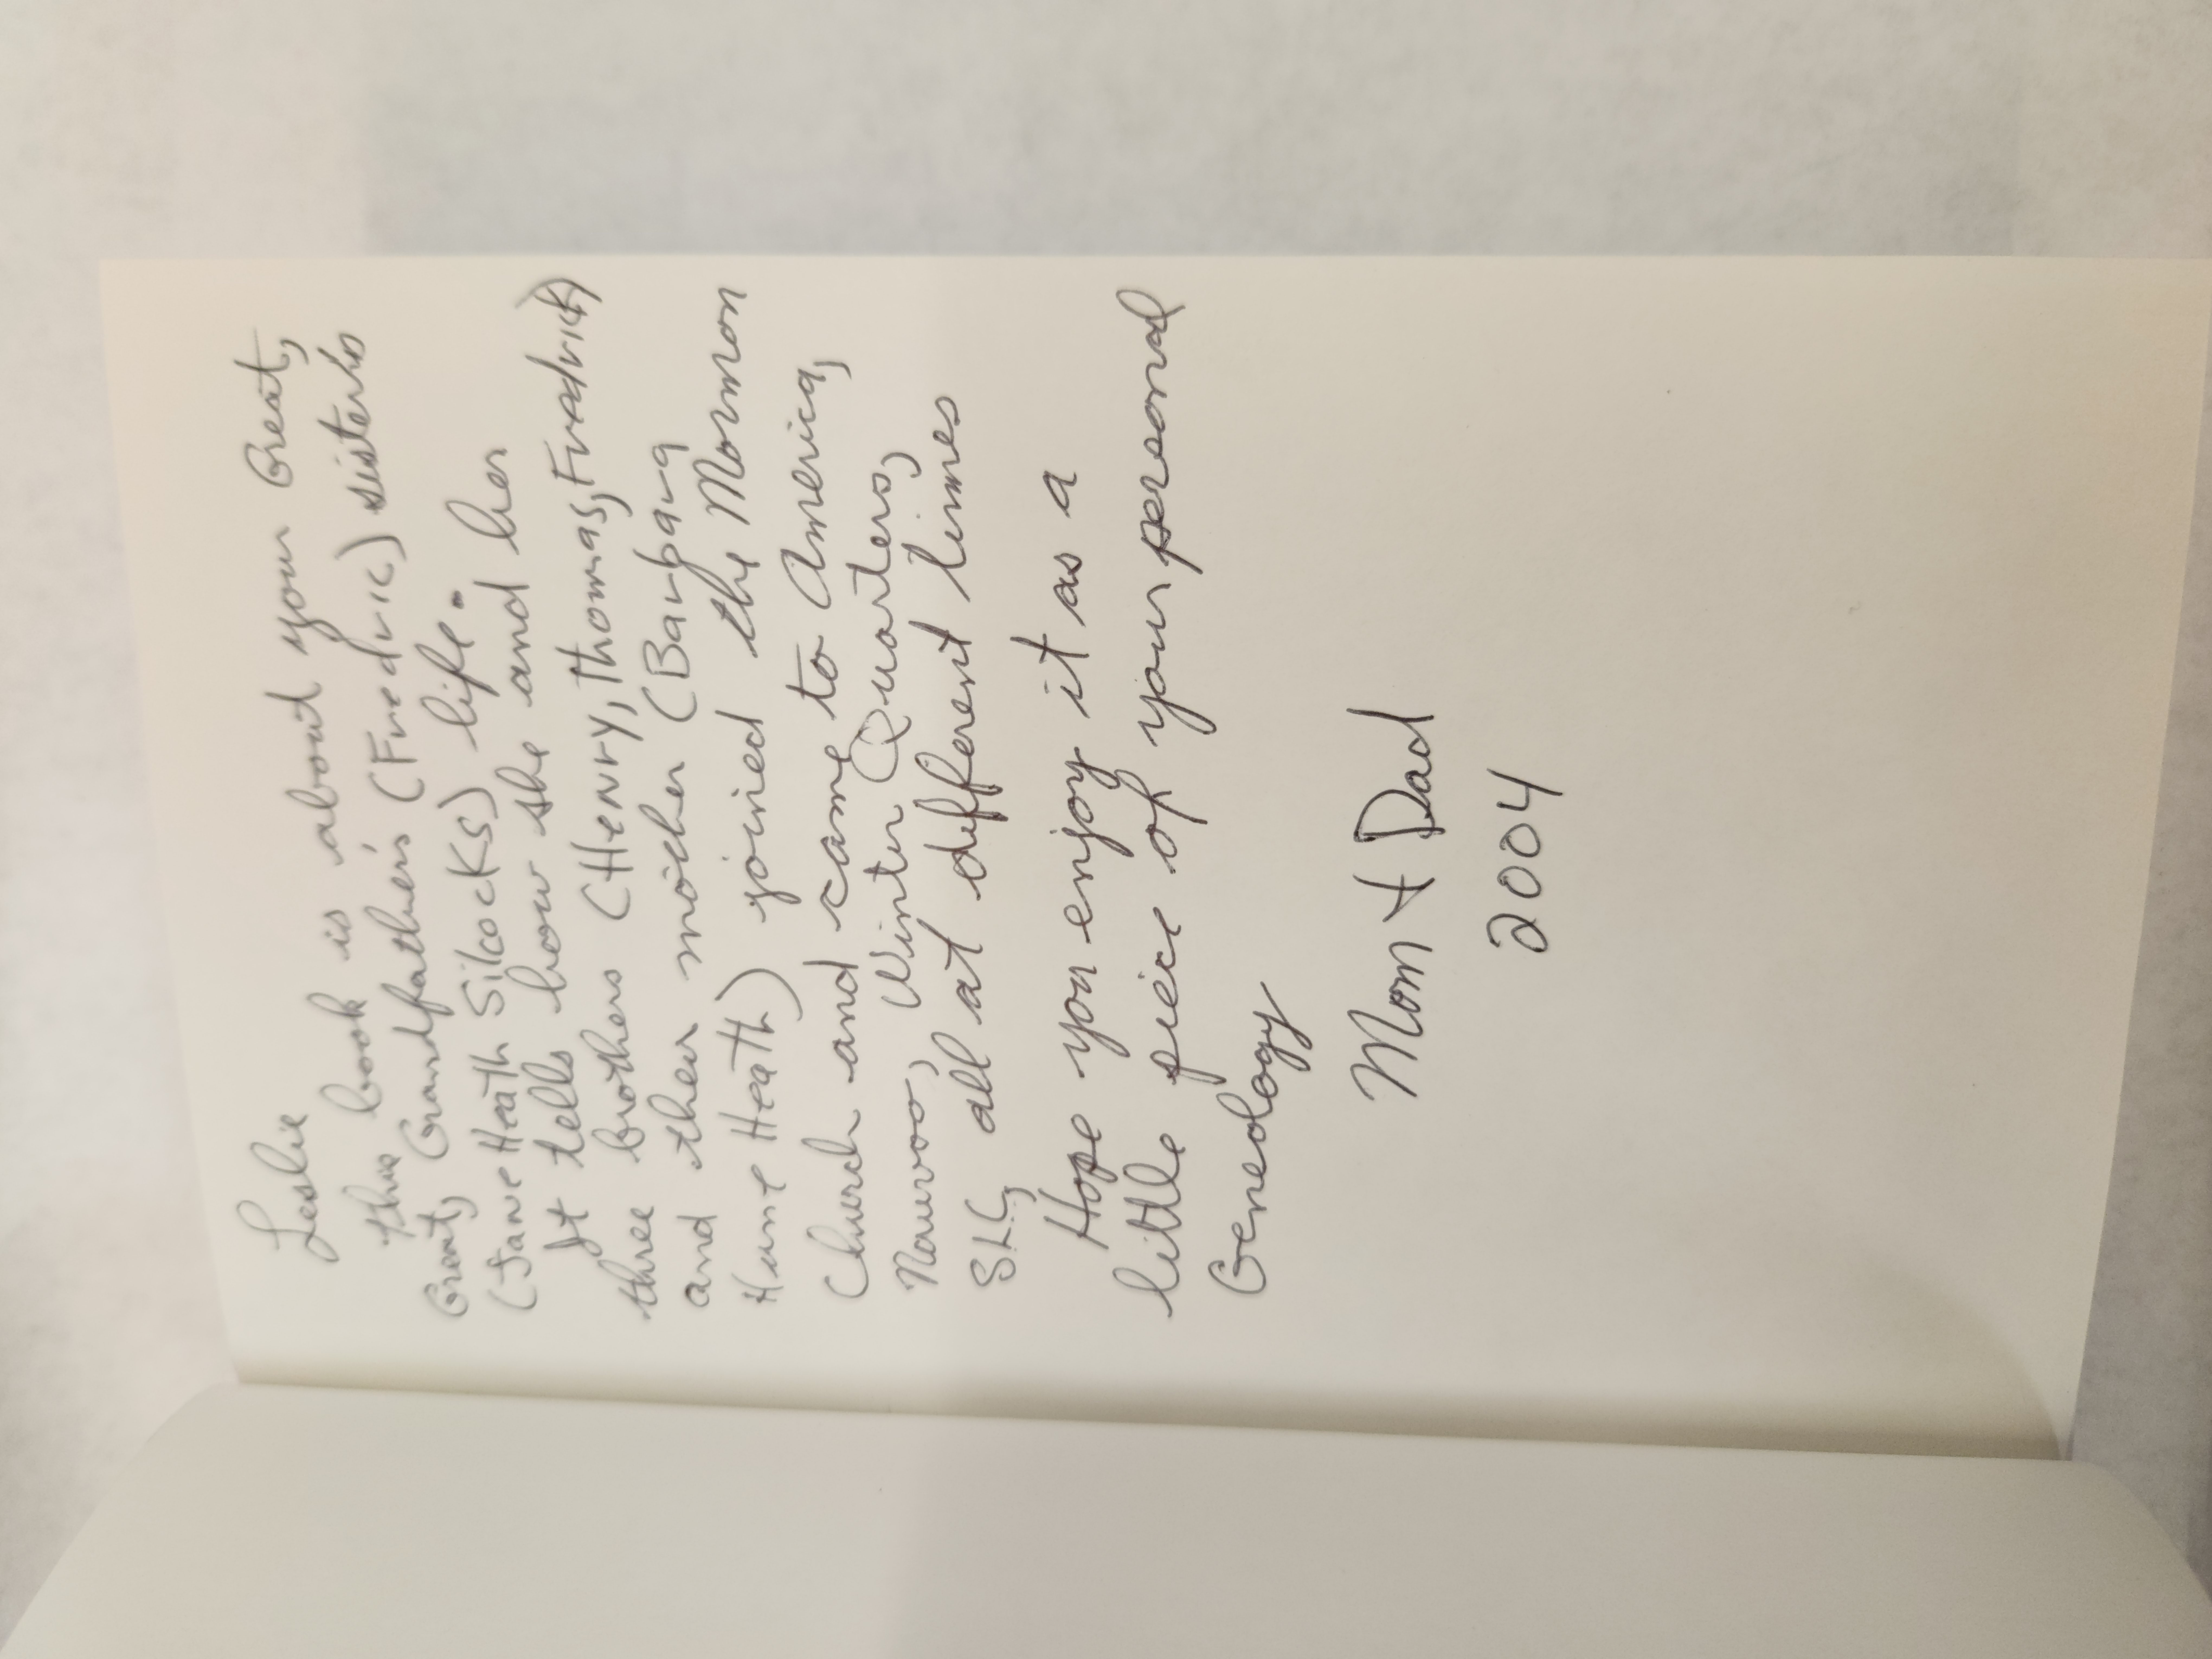 Leslie
This book is about your Great,
Great, Grandfather's (Fredric) sister's
(Jane Heath Silcocks) life.
It tells how she and her
three brothers (Henry, Thomas, Fredrick)
and their mother (Barbara
Hunt Heath) joined the Mormon
Church and came to America,
Nauvoo, Winter Quarters,
SLC, all at different times
Hope you enjoy it as a
little piece of your personal
Geneology
Mom + Dad
2004